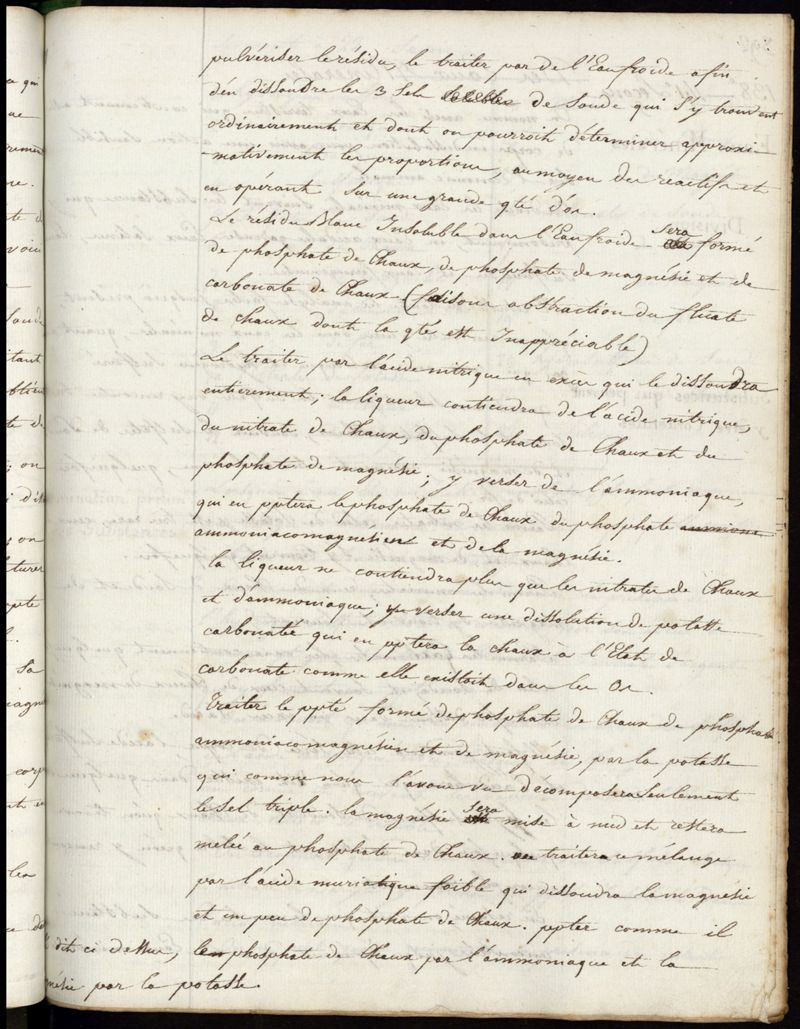 pulvériser le résidu, le traiter par de l'Eau froide afin
d'en dissoudre les 3 Sels de Soude qui s'y trouvent
ordinairement et dont on pourroit déterminer approxi-
-mativement les proportions, au moyen des reactifs et
en opérant Sur une grande qté d'os.
Le résidu Blanc Insoluble dans l'Eau froide Sera formé
de phosphate de Chaux, de phosphate de magnésie et de
carbonate de Chaux (faisons abstraction du fluate
de chaux dont la qté est Inappréciable)
Le traiter par l'acide nitrique en excès qui le dissoudra
entierement; la liqueur contiendra de l'acide nitrique,
du nitrate de Chaux, du phosphate de Chaux et du
phosphate de magnésie; y verser de l'ammoniaque,
qui en pptera le phosphate de Chaux du phosphate
ammoniacomagnésien et de la magnésie.
la liqueur ne contiendra plus que les nitrates de Chaux
et d'ammoniaque; y verser une dissolution de potasse
carbonatée qui en pptera la chaux à l'Etat de
carbonate comme elle existoit dans les Os.
Traiter le ppté formé de phosphate de Chaux de phosphate
ammoniacomagnésien et de magnésie, par la potasse
qui comme nous l'avons vu décomposera Seulement
le Sel triple. la magnésie Sera mise à nud et restera
melée au phosphate de Chaux. traiter ce mélange
par l'acide muriatique foible qui dissoudra la magnésie
et un peu de phosphate de Chaux. ppter comme il
dit ci dessus, le phosphate de Chaux par l'ammoniaque et la
par la potasse.